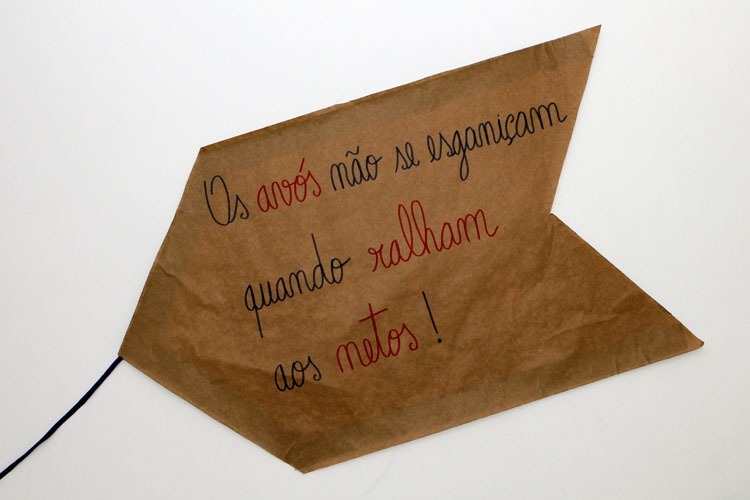 Os avós não se esganiçam
quando ralham
aos netos!